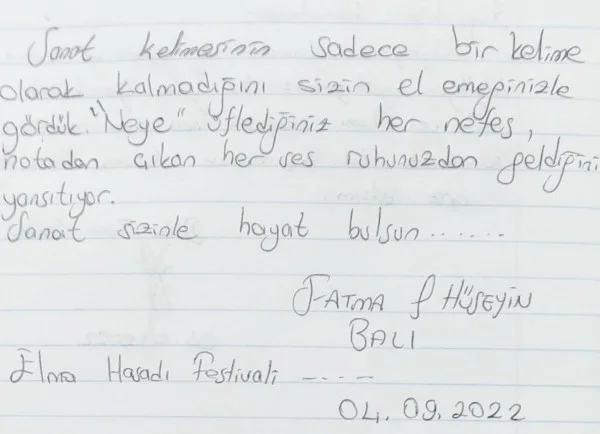 Sanat kelimesinin sadece bir kelime
olarak kalmadığını sizin el emeğinizle
gördük. "Neye" üflediğiniz her nefes,
notadan çıkan her ses ruhunuzdan geldiğini
yansıtıyor.
Sanat sizinle hayat bulsun.......
FATMA & HÜSEYİN
BALI
Elma Hasadı Festivali ----
04.09.2022